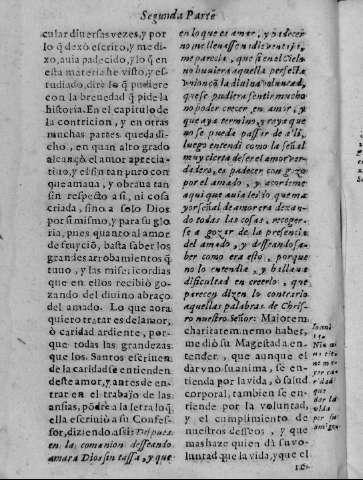 Segunda Parte
cular diuersas vezes, y por
lo q̃ dexò escrito, y me di-
xo, auia padecido, y lo q̃ en
esta materia he visto, y es-
tudiado, dirè lo q̃ pudiere
con la breuedad q̃ pide la
historia. En el capitulo de
la contricion, y en otras
muchas partes queda di-
cho, en quan alto grado
alcançò el amor aprecia-
tiuo, y el fin tan puro con
que amaua, y obraua tan
sin respecto a si, ni cosa
criada, sino a solo Dios
por si mismo, y para su glo-
ria, pues quanto al amor
de fruyciõ, basta saber los
grandes arrobamientos q̃
tuuo, y las misericordias
que en ellos recibiò go-
zando del diuino abraço
del amado. Lo que aora
quiero tratar es del amor,
ò caridad ardiente, por-
que todas las grandezas
que los Santos escriuen
de la caridad se entienden
deste amor, y antes de en-
trar en el trabajo de las
ansias, põdre a la letra lo q̃
ella escriuiò a su Confes-
sor, diziendo assi: Despues
en la comunion desseando
amar a Dios sin tassa, y que
en lo que es amar, y padecer
no me lleuassen
me parecia, que si en el cielo
no huuiera aquella perfecta
vnion cõ la diuina voluntad,
que se pudiera sentir mucho
no poder crecer en amor, y
que aya termino, y raya que
no se pueda passar de alli,
luego entendi como la señal
muy cierta de ser el amor ver-
dadero, es padecer con gozo
por el amado, y acorde me
aqui que auia leido que ma-
yor señal de amor era dexan-
do todas las cosas, recoger-
se a gozar de la presencia
del amado, y desseando sa-
ber como era esto, porque
no lo entendia, y hallaua
dificultad en creerlo, que
parecen dizen lo contrario
aquellas palabras de Chris-
to nuestro Señor: Maiorem
charitatem nemo habet,
me diò su Magestad a en-
tender, que aunque el
dar vno su anima, se en-
tienda por la vida, ò salud
corporal, tambien se en-
tiende por la voluntad,
y el cumplimiento de
nuestros desseos, y que
mas haze quien dà su vo-
luntad que la vida, y que el